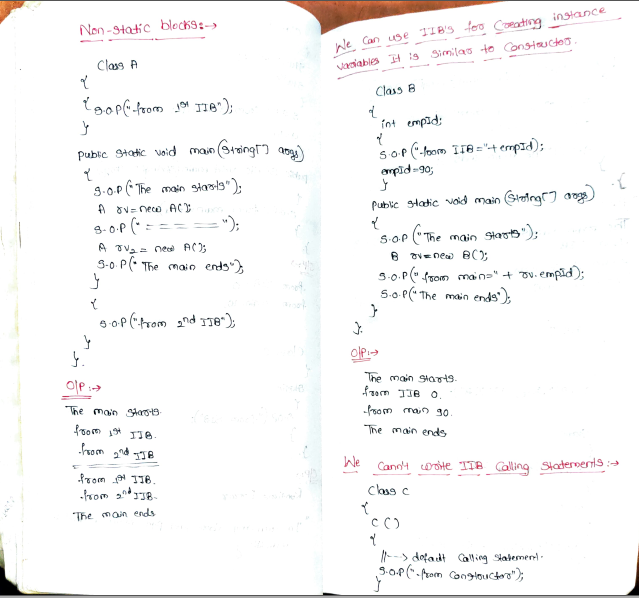 Non-static blocks:→
Class A
{
{ S.O.P("from 1st IIB");
}
public static void main(String[] args)
{
S.O.P("The main starts");
A rv=new A();
S.O.P("=====");
A rv2 = new A();
S.O.P("The main ends");
}
{
S.O.P("from 2nd IIB");
}
}.
O/P:→
The main starts.
from 1st IIB.
from 2nd IIB
from 1st IIB.
from 2nd IIB.
The main ends
We can use IIB's for Creating instance
variables It is similar to Constructor.
Class B
{
int empId;
{
S.O.P("from IIB="+empId);
empId=90;
}
public static void main (String[] args)
{
S.O.P("The main starts");
B rv=new B();
S.O.P("from main=" + rv.empId);
S.O.P("The main ends");
}
}.
O/P:→
The main starts.
from IIB 0.
from main 90.
The main ends
We Cann't write IIB Calling statements:→
Class C
{
C()
{
//--> defadt Calling statement.
S.O.P("from Constructor");
}